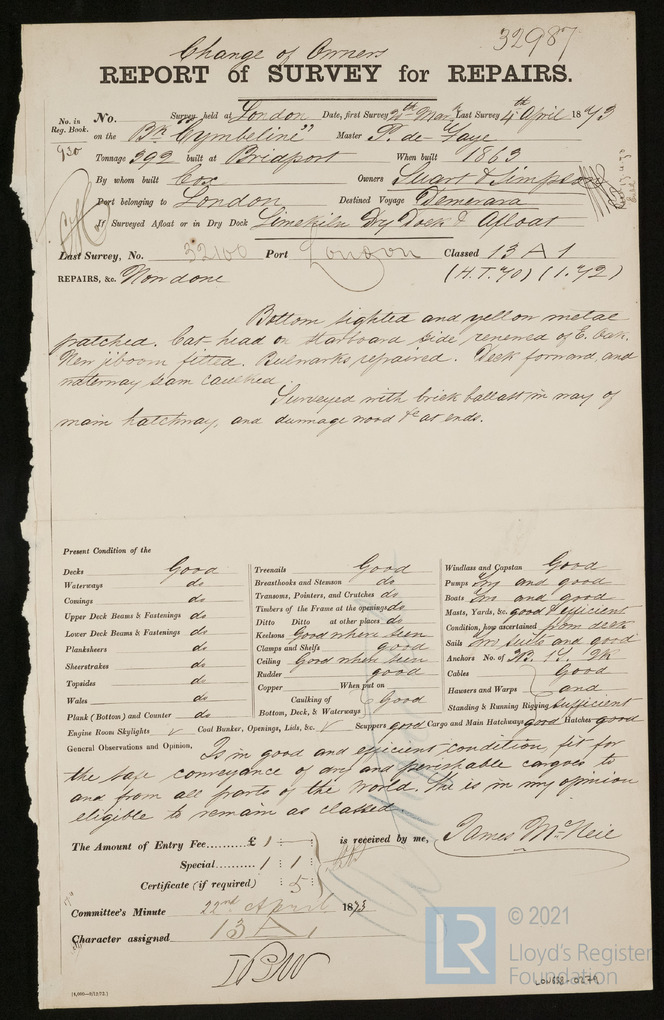 Change of Owners
32987
REPORT of SURVEY for REPAIRS.
No. in Reg. Book. No. Survey held at London Date, first Survey 20th Mar. Last Survey 4th April 1873
930 on the Bk "Cymbeline" Master P. de
Tonnage 392 built at Bridport When built 1863
By whom built Cox Owners Stuart & Simpson
Port belonging to London Destined Voyage Demerara
If Surveyed Afloat or in Dry Dock Limekiln Dry Dock & Afloat
Last Survey, No. 32100 Port London Classed 13 A 1
REPAIRS, &c. Now done (H.T. 70) (1.72)
Bottom sighted and yellow metal
patched. Cat-head on starboard side renewed of E. Oak.
New jiboom fitted. Bulwarks repaired. Deck forward, and
waterway seam caulked.
Surveyed with brick ballast in way of
main hatchway, and dunnage wood &c at ends.
Present Condition of the
Decks Good
Waterways do
Comings do
Upper Deck Beams & Fastenings do
Lower Deck Beams & Fastenings do
Planksheers do
Sheerstrakes do
Topsides do
Wales do
Plank (Bottom) and Counter do
Treenails Good
Breasthooks and Stemson do
Transoms, Pointers, and Crutches do
Timbers of the Frame at the openings do
Ditto Ditto at other places do
Keelsons Good where seen
Clamps and Shelfs good
Ceiling Good where seen
Rudder good
Copper When put on
Caulking of Bottom, Deck, & Waterways Good
Windlass and Capstan Good
Pumps and good
Boats and good
Masts, Yards, &c. good & efficient
Condition, how ascertained from deck
Sails suits and good
Anchors No. of
Cables Good
Hawsers and Warps and
Standing & Running Rigging sufficient
Engine Room Skylights ✓ Coal Bunker, Openings, Lids, &c. ✓ Scuppers good Cargo and Main Hatchways good Hatches good
General Observations and Opinion, Is in good and efficient condition, fit for
the safe conveyance of dry and perishable cargoes to
and from all parts of the world. She is in my opinion
eligible to remain as classed.
The Amount of Entry Fee..........£ 1 : - : - is received by me, James McNeil
Special.......... 1 : 1 :
Certificate (if required) : 5 :
Committee's Minute 22nd April 1873
Character assigned 13 A 1
[4,000—6/12/72.]
LR
© 2021
Lloyd's Register
Foundation